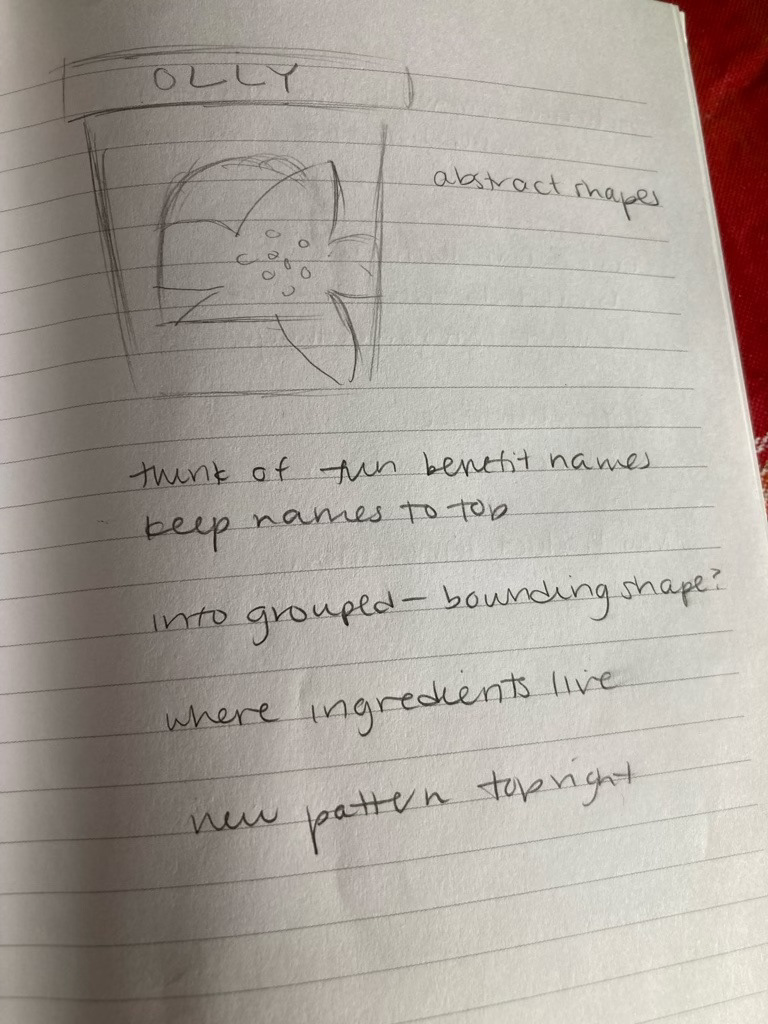 OLLY
abstract shapes
think of fun benefit names
keep names to top
into grouped - bounding shape?
where ingredients live
new pattern top right